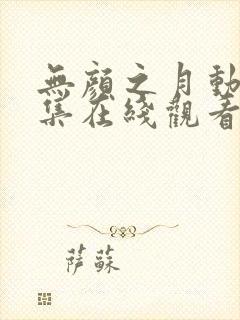 無顏之月動
集在綫觀看
萨蘇